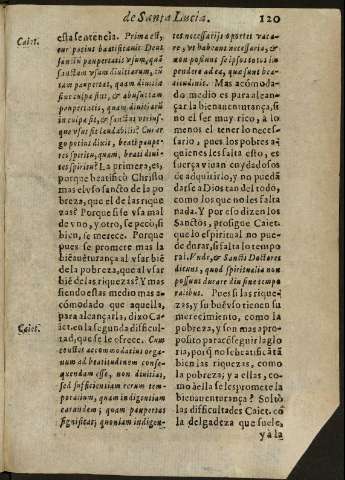 de Santa Lucia. 120
Caiet.
esta sentencia. Prima est,
cur potius beatificauit Deus
sanctū paupertatis vsum, quā
sanctam vsum diuitiarum, cū
tam paupertas, quam diuitiæ
sint culpa sint, & abusus tam
paupertatis, quam diuitiarū
in culpa sit, & sanctus vtrius-
que vsus sit laudabilis? Cur er
go potius dixit, beati paupe-
res spiritu, quam, beati diui-
tes spiritu? La primera, es,
porque beatificò Christo
mas el vso sancto de la po
breza, que el de las rique
zas? Porque si se vsa mal
de vno, y otro, se pecò, si
bien, se merece. Porque
pues se promere mas la
biēauēturança al vsar biē
de la pobreza, que al vsar
biē de las riquezas? Y mas
siendo estas medio mas a-
cōmodado que aquella,
para alcançarla, dixo Ca-
Caiet.
iet. en la segunda dificul-
tad, que se le ofrece. Cum
constat accommodatius orga-
num ad beatitudinem conse-
quendam esse, non diuitias,
sed sufficientiam rerum tem-
poralium, quam indigentiam
earundem; quam paupertas
significat; quoniam indigen-
tes necessarijs oportet vaca-
re, vt habeant necessaria, &
non possunt se ipsos totos im
pendere ad ea, quæ sunt bea-
titudinis. Mas acōmoda-
do medio es para alcan-
çar la bienauenturança, si
no el ser muy rico, a lo
menos el tener lo neces-
sario, pues los pobres a-
quienes les falta esto, es
fuerça viuan cuydadosos
de adquirirlo, y no puedā
darse a Dios tan del todo,
como los que no les falta
nada. Y por eso dizen los
Sanctos, prosigue Caiet.
que lo espiritual no pue-
de durar, si falta lo tempo
ral. Vnde, & Sancti Doctores
dicunt, quod spiritualia non
possunt durare diu sine tempo
ralibus. Pues si las rique-
zas, y su buē vso tienen su
merecimiento, como la
pobreza, y son mas apro-
posito para cōseguir la glo
ria, por q̃ no se beatificā tā
bien las riquezas, como
la pobreza; y a ellas, co-
mo à ella se les promete la
bienauenturança? Soltò
las dificultades Caiet. cō
la delgadeza que suele,
y à la